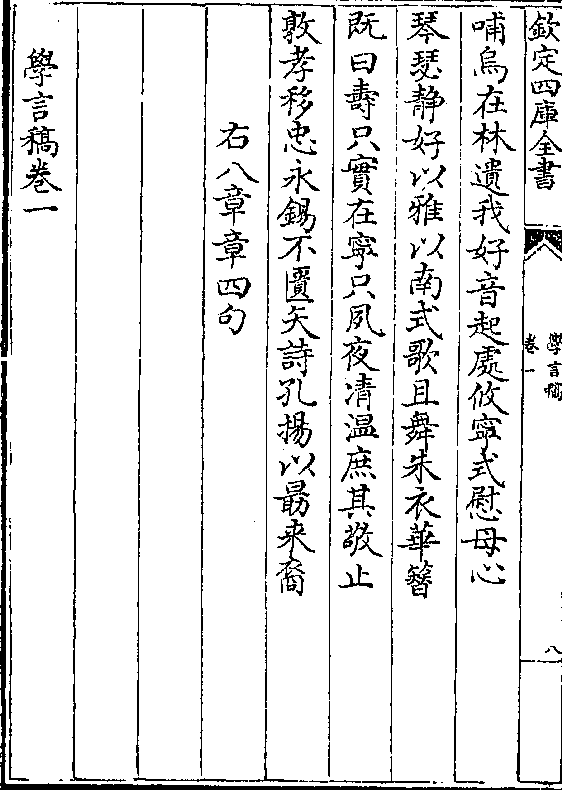 欽定四庫全書
學言稿
卷一
八
哺烏在林遺我好音起處攸寧式慰母心
琴瑟静好以雅以南式歌且舞朱衣華簪
既曰壽只實在寧只夙夜凊温庶其敬止
敦孝移忠永錫不匱矢詩孔揚以勗来裔
右八章章四句
學言稿卷一